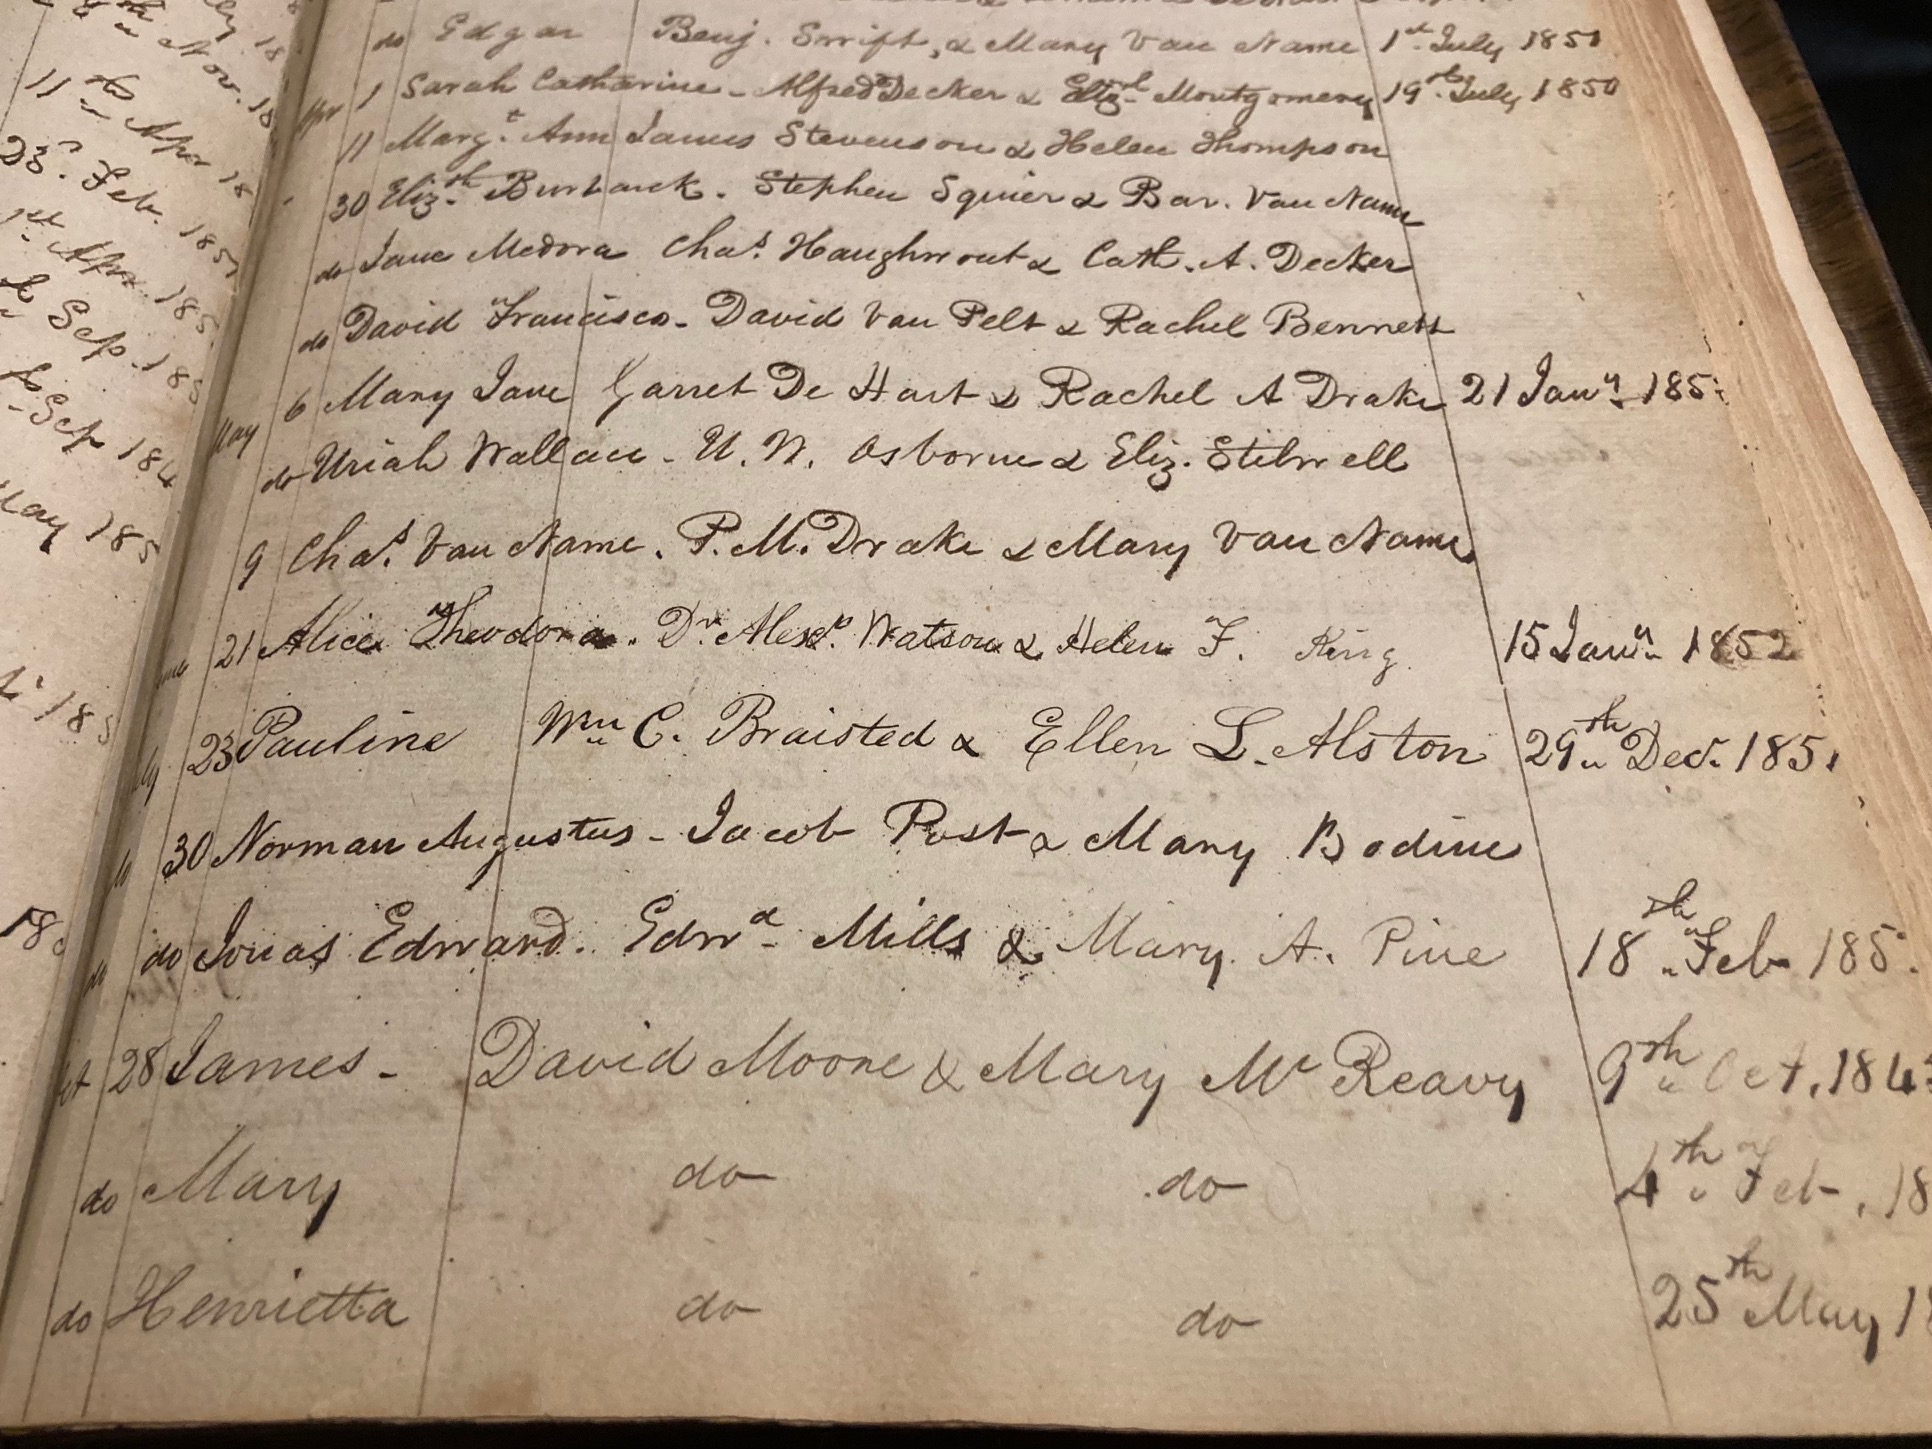 do Edgar Benj. Swift, & Mary Van Name 1st July 1851
Apr 1 Sarah Catharine - Alfred Decker & Eliz. Montgomery 19th July 1850
11 Margt. Ann James Stevenson & Helen Thompson
30 Elizth. Burbanck. Stephen Squier & Bar. Van Name
do Jane Medora Chas. Haughwout & Cath. A. Decker
do David Francisco - David Van Pelt & Rachel Bennett
May 6 Mary Jane Garret De Hart & Rachel A Drake 21 Jany. 185
do Uriah Wallace - U. W. Osborne & Eliz. Stilwell
9 Chas. Van Name. P. M. Drake & Mary Van Name
21 Alice Theodora. Dr. Alexr. Watson & Helen F. King. 15 Jany. 1852
23 Pauline Wm C. Braisted & Ellen L. Alston 29th Dec. 1851
do 30 Norman Augustus - Jacob Post & Mary Bodine
do do Jonas Edward. Edwd. Mills & Mary A. Pine 18th Feb 185
28 James - David Moore & Mary Mc Reavy 9th Oct, 184
do Mary do do 4th Feb, 18
do Henrietta do do 25th May 18
11th Apr 18
23d. Feb. 1851
1st Apr. 185
Sep. 185
Sep 184
May 185
185